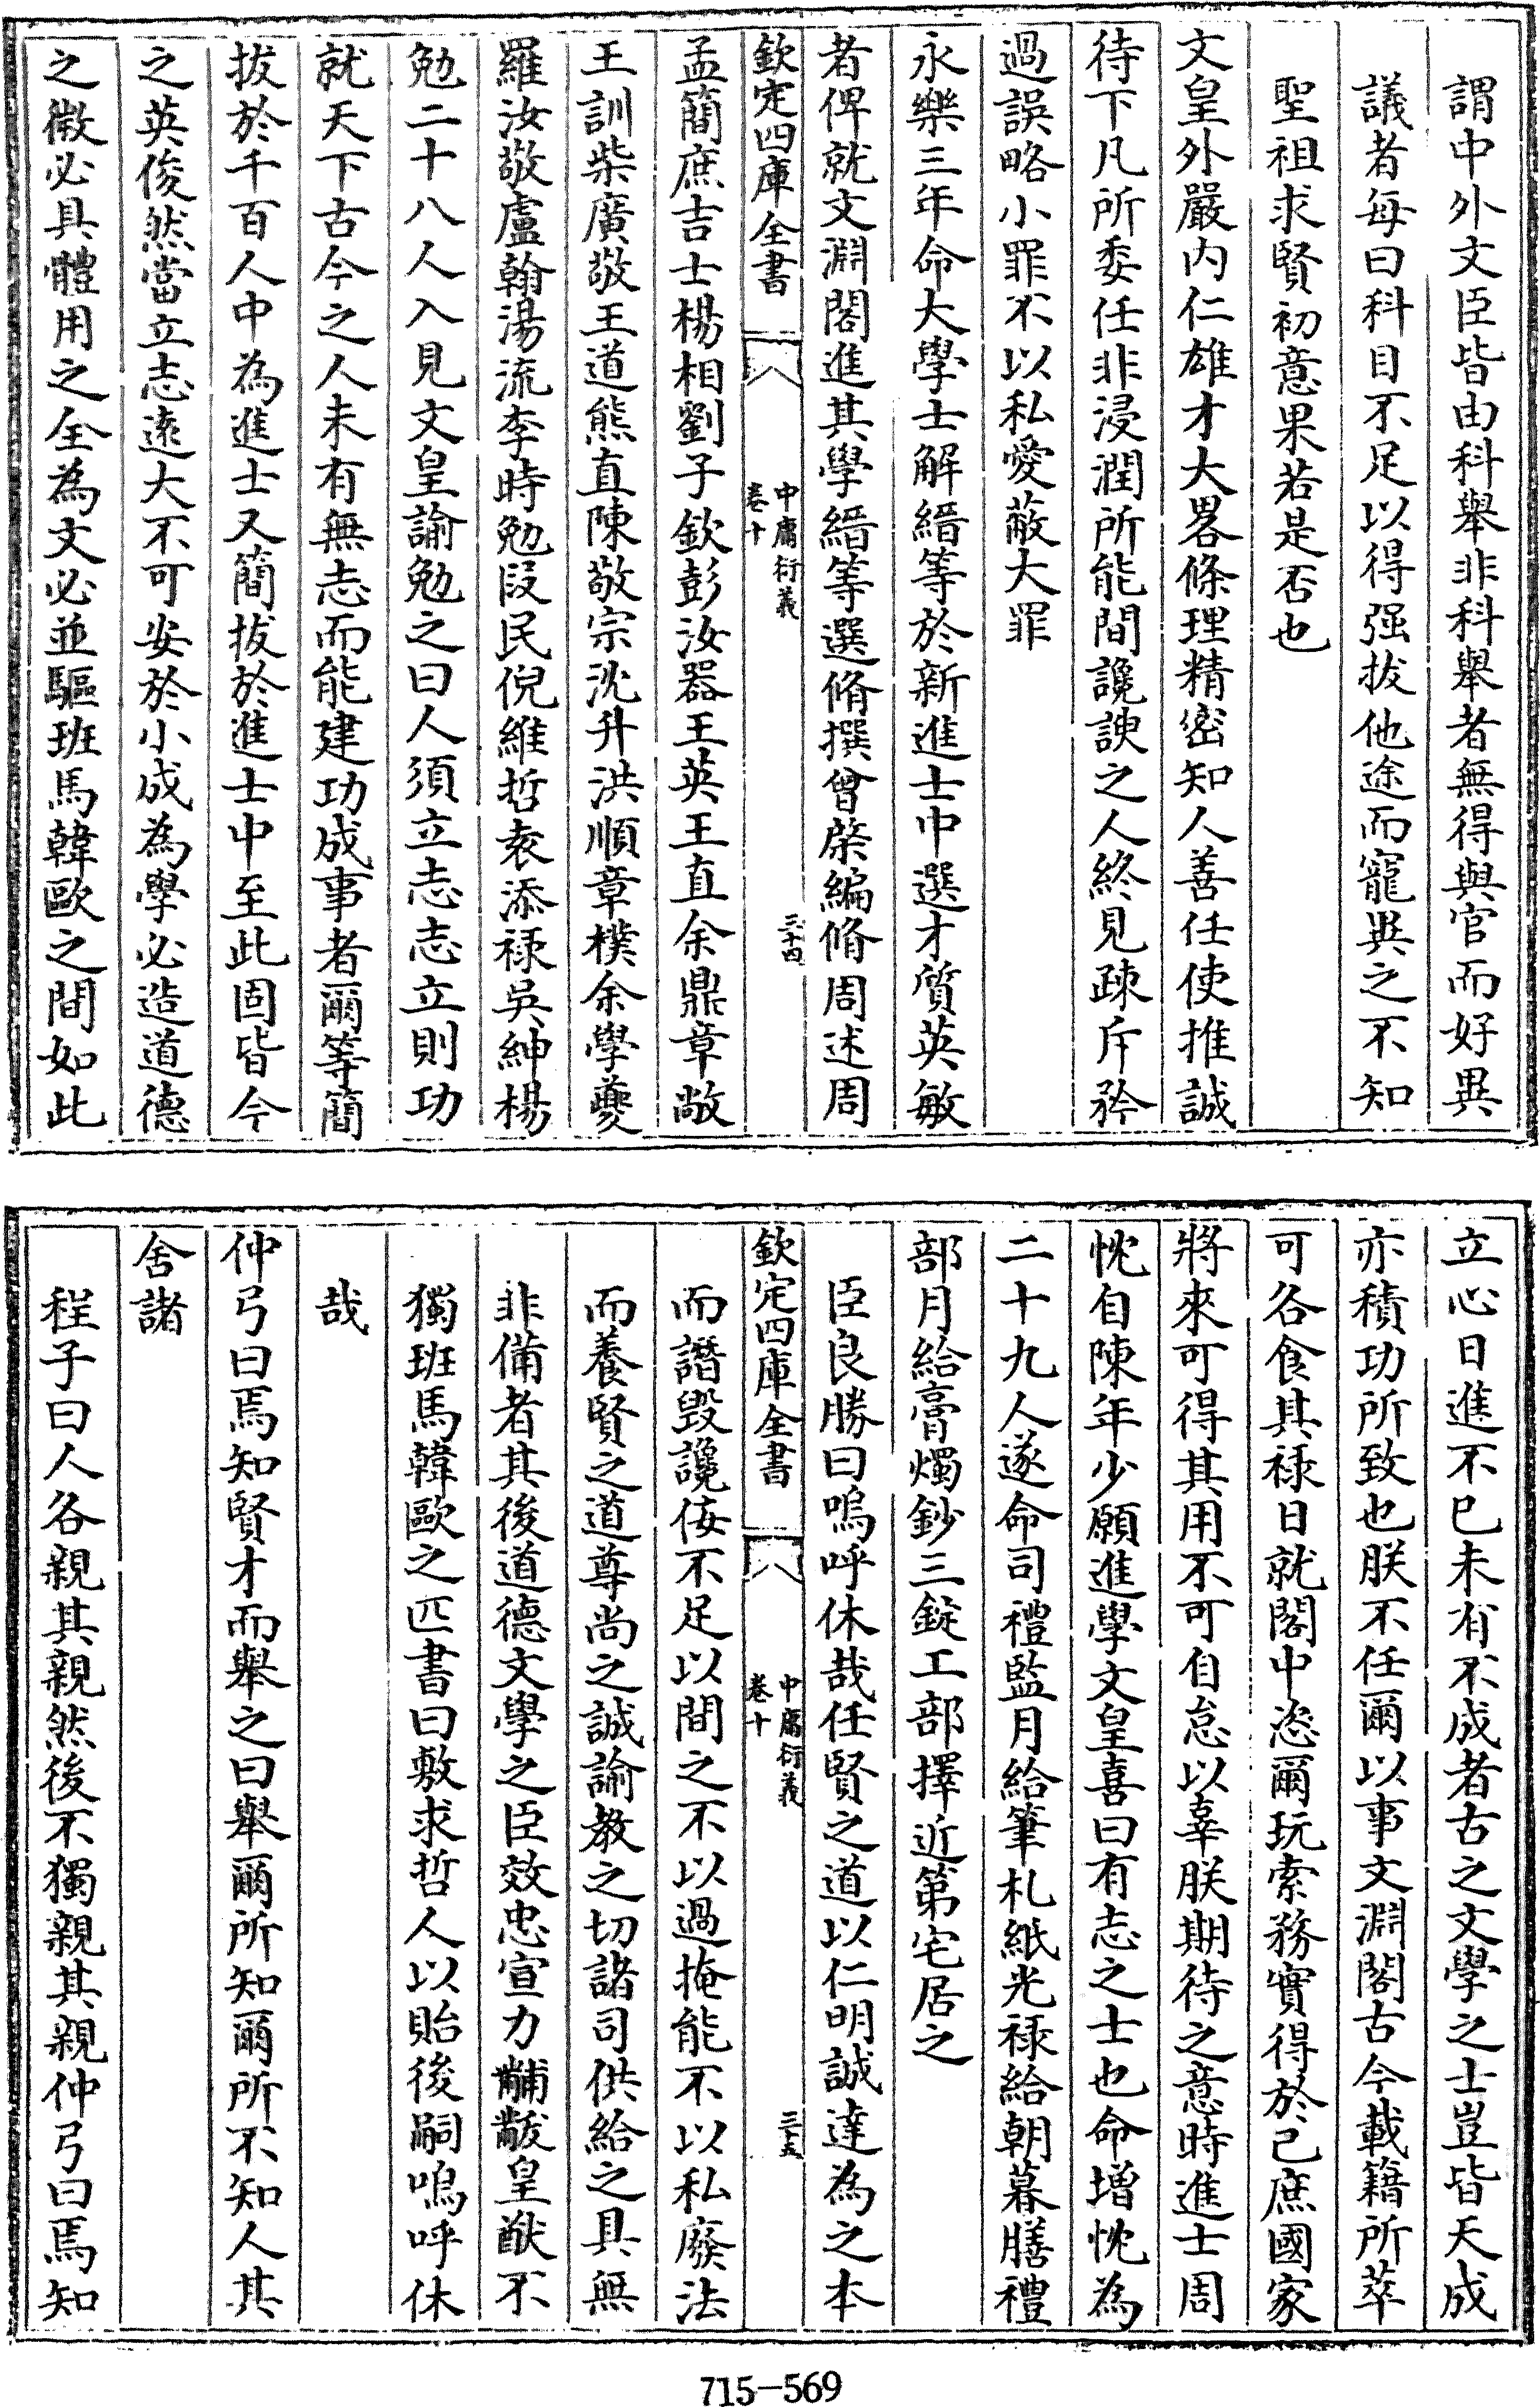 謂中外文臣皆由科舉非科舉者無得與官而好異
議者每曰科目不足以得强拔他途而寵異之不知
聖祖求賢初意果若是否也
文皇外嚴内仁雄才大畧條理精密知人善任使推誠
待下凡所委任非浸潤所能間讒諛之人終見疎斥矜
過誤略小罪不以私愛蔽大罪
永樂三年命大學士解縉等於新進士中選才質英敏
者俾就文淵閣進其學縉等選脩撰曾棨編脩周述周
欽定四庫全書
中庸衍義
卷十
三十四
孟簡庶吉士楊相劉子欽彭汝器王英王直余鼎章敞
王訓柴廣敬王道熊直陳敬宗沈升洪順章樸余學夔
羅汝敬盧翰湯流李時勉段民倪維哲袁添禄吳紳楊
勉二十八人入見文皇諭勉之曰人須立志志立則功
就天下古今之人未有無志而能建功成事者爾等簡
拔於千百人中為進士又簡拔於進士中至此固皆今
之英俊然當立志遠大不可安於小成為學必造道德
之微必具體用之全為文必並驅班馬韓歐之間如此
立心日進不已未有不成者古之文學之士豈皆天成
亦積功所致也朕不任爾以事文淵閣古今載籍所萃
可各食其禄日就閣中恣爾玩索務實得於己庶國家
將來可得其用不可自怠以辜朕期待之意時進士周
忱自陳年少願進學文皇喜曰有志之士也命増忱為
二十九人遂命司禮監月給筆札紙光禄給朝暮膳禮
部月給膏燭鈔三錠工部擇近第宅居之
臣良勝曰嗚呼休哉任賢之道以仁明誠達為之本
欽定四庫全書
中庸衍義
卷十
三十五
而譖毁讒佞不足以間之不以過掩能不以私廢法
而養賢之道尊尚之誠諭教之切諸司供給之具無
非備者其後道德文學之臣效忠宣力黼黻皇猷不
獨班馬韓歐之匹書曰敷求哲人以貽後嗣嗚呼休
哉
仲弓曰焉知賢才而舉之曰舉爾所知爾所不知人其
舍諸
程子曰人各親其親然後不獨親其親仲弓曰焉知
715-569